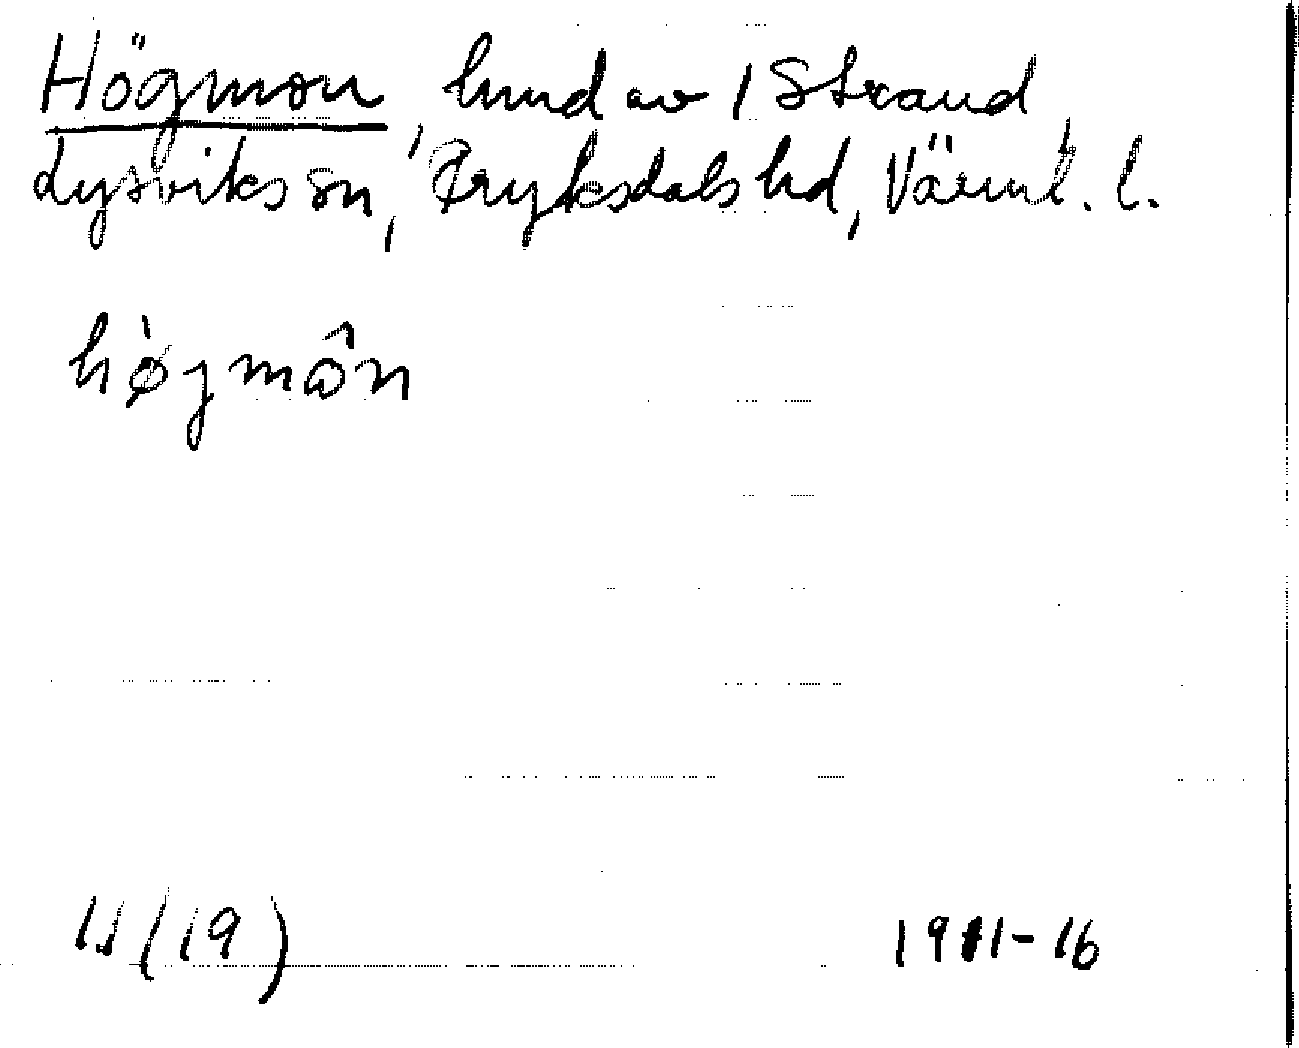 Högmon, hmd av 1 Strand,
Lysviks sn, Fryksdals hd, Värml. l.
hø̀gmôn
LJ (19)
1911-16